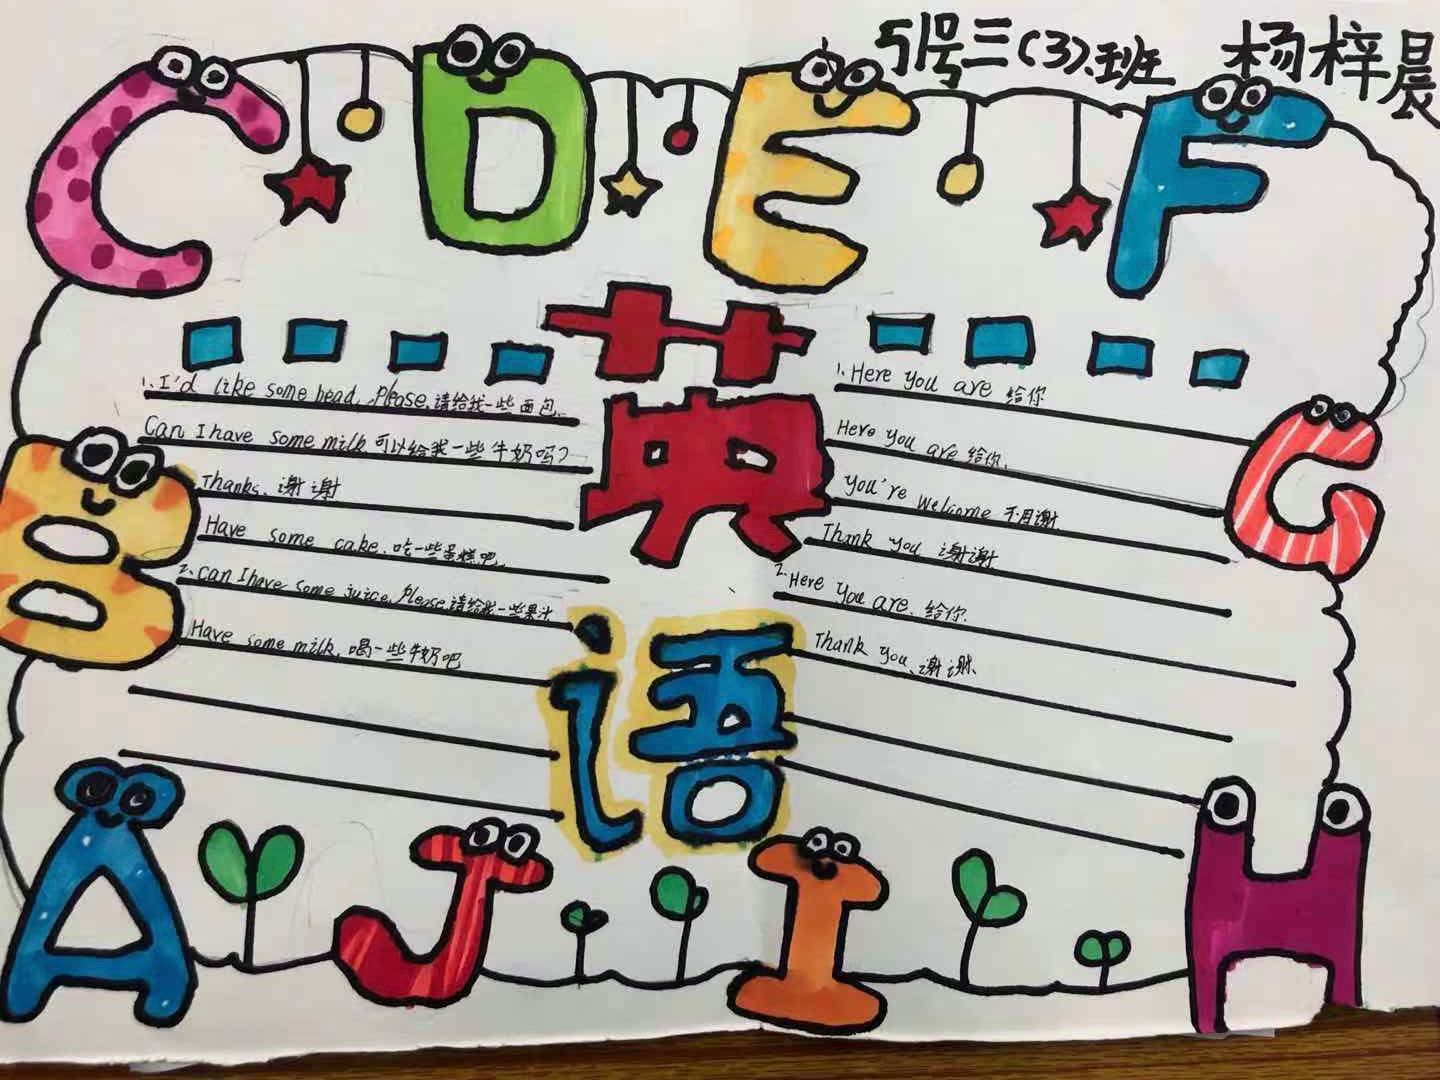 51号三(3)班 杨梓晨
C D E F
英
语
1. I'd like some bead, Please. 请给我一些面包.
Can I have some milk 可以给我一些牛奶吗?
Thanks. 谢谢
Have some cake. 吃一些蛋糕吧.
2. can I have some juice, Please. 请给我一些果汁
Have some milk. 喝一些牛奶吧
1. Here you are 给你
Here you are 给你.
You're welcome 不用谢
Thank you 谢谢
2. Here You are. 给你.
Thank you. 谢谢.
B
G
A J I H